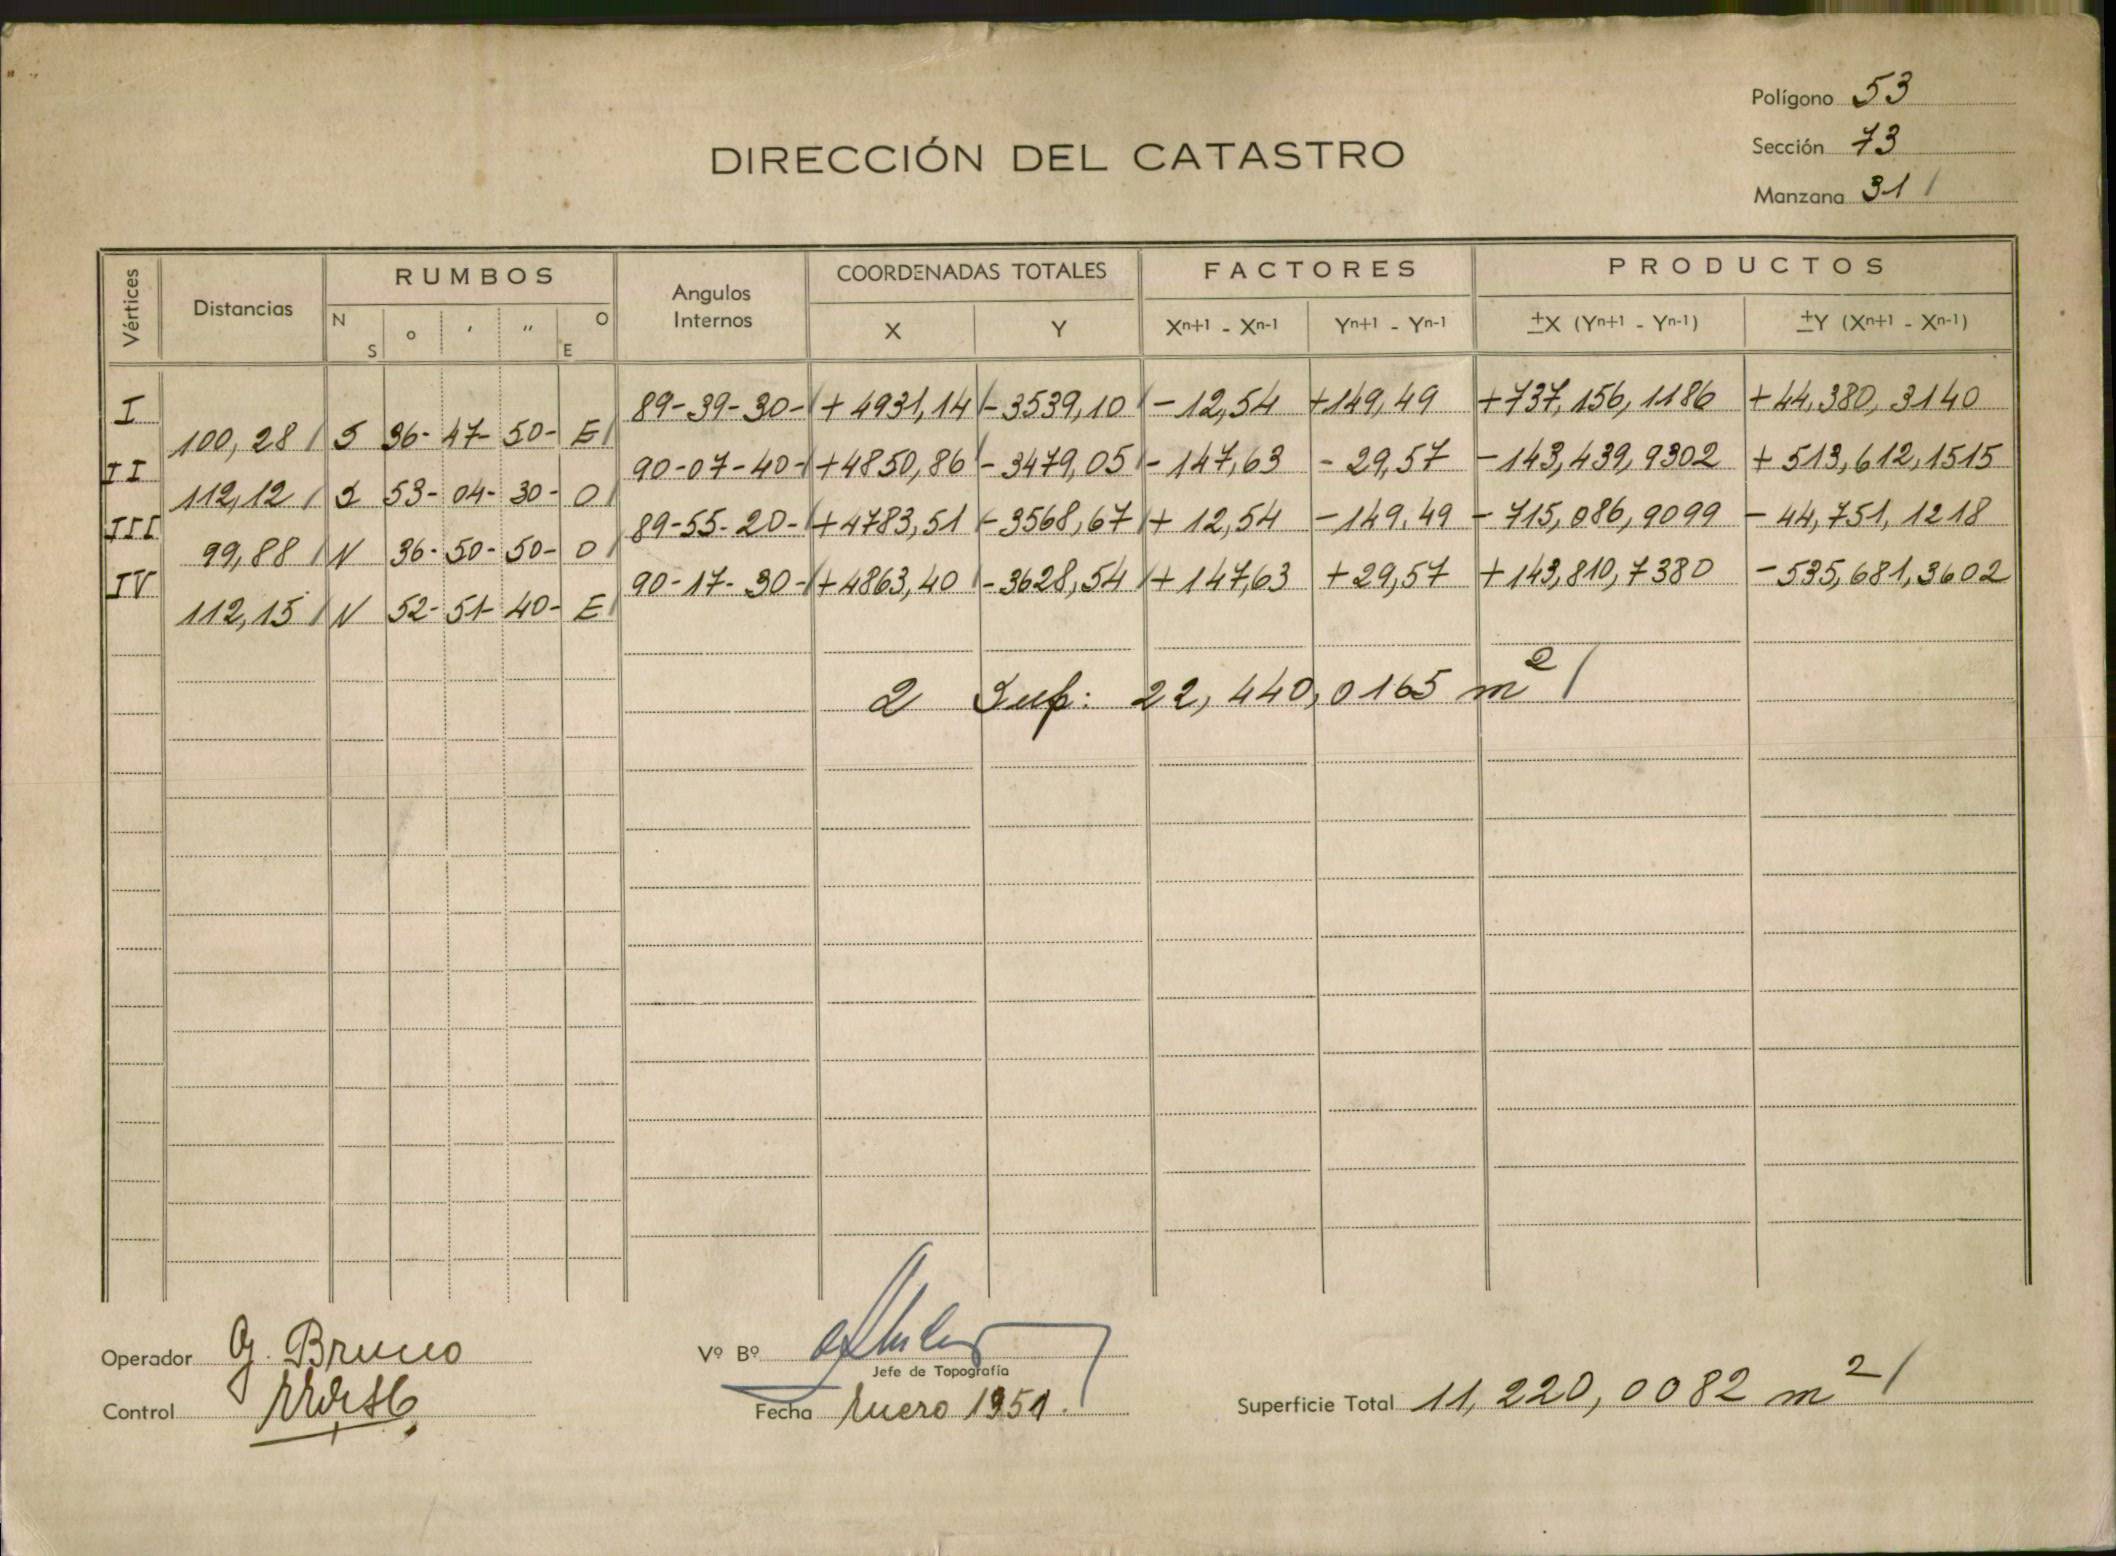 Polígono 53
Sección 73
Manzana 31
DIRECCIÓN DEL CATASTRO
Vértices Distancias RUMBOS Angulos Internos COORDENADAS TOTALES FACTORES PRODUCTOS
N S o ' " E O X Y Xn+1 - Xn-1 Yn+1 - Yn-1 ±X (Yn+1 - Yn-1) ±Y (Xn+1 - Xn-1)
I 89-39-30- + 4931,14 - 3539,10 - 12,54 +149,49 +737,156,1186 +44,380,3140
100,28 S 36- 47- 50- E
II 90-07-40- +4850,86 - 3479,05 - 147,63 - 29,57 - 143,439,9302 + 513,612,1515
112,12 S 53- 04- 30- O
III 89-55-20- +4783,51 - 3568,67 + 12,54 - 149,49 - 715,086,9099 - 44,751,1218
99,88 N 36- 50- 50- O
IV 90-17-30- +4863,40 - 3628,54 + 147,63 +29,57 +143,810,7380 - 535,681,3602
112,15 N 52- 51- 40- E
2 Sup: 22,440,0165 m2
Operador G. Bruno
Vº Bº
Jefe de Topografía
Control
Fecha Enero 1951.
Superficie Total 11,220,0082 m2